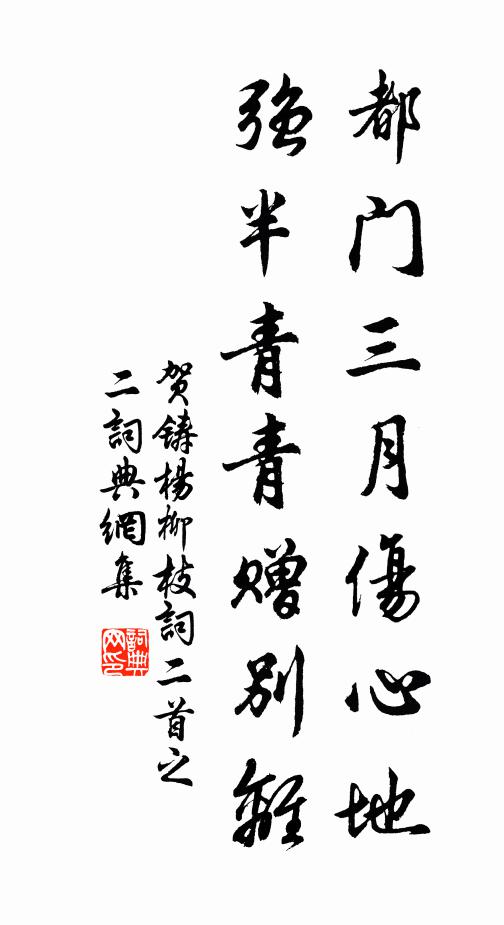 都门三月傷心地
强半青青赠别離
贺铸楊柳枝詞二首之
二詞典網集
詞典网印